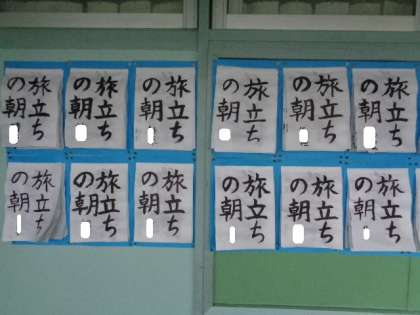 旅立ち
の朝
旅立ち
の朝
旅立ち
の朝
旅立ち
の朝
旅立ち
の朝
旅立ち
の朝
旅立ち
の朝
旅立ち
の朝
旅立ち
の朝
旅立ち
の朝
旅立ち
の朝
旅立ち
の朝